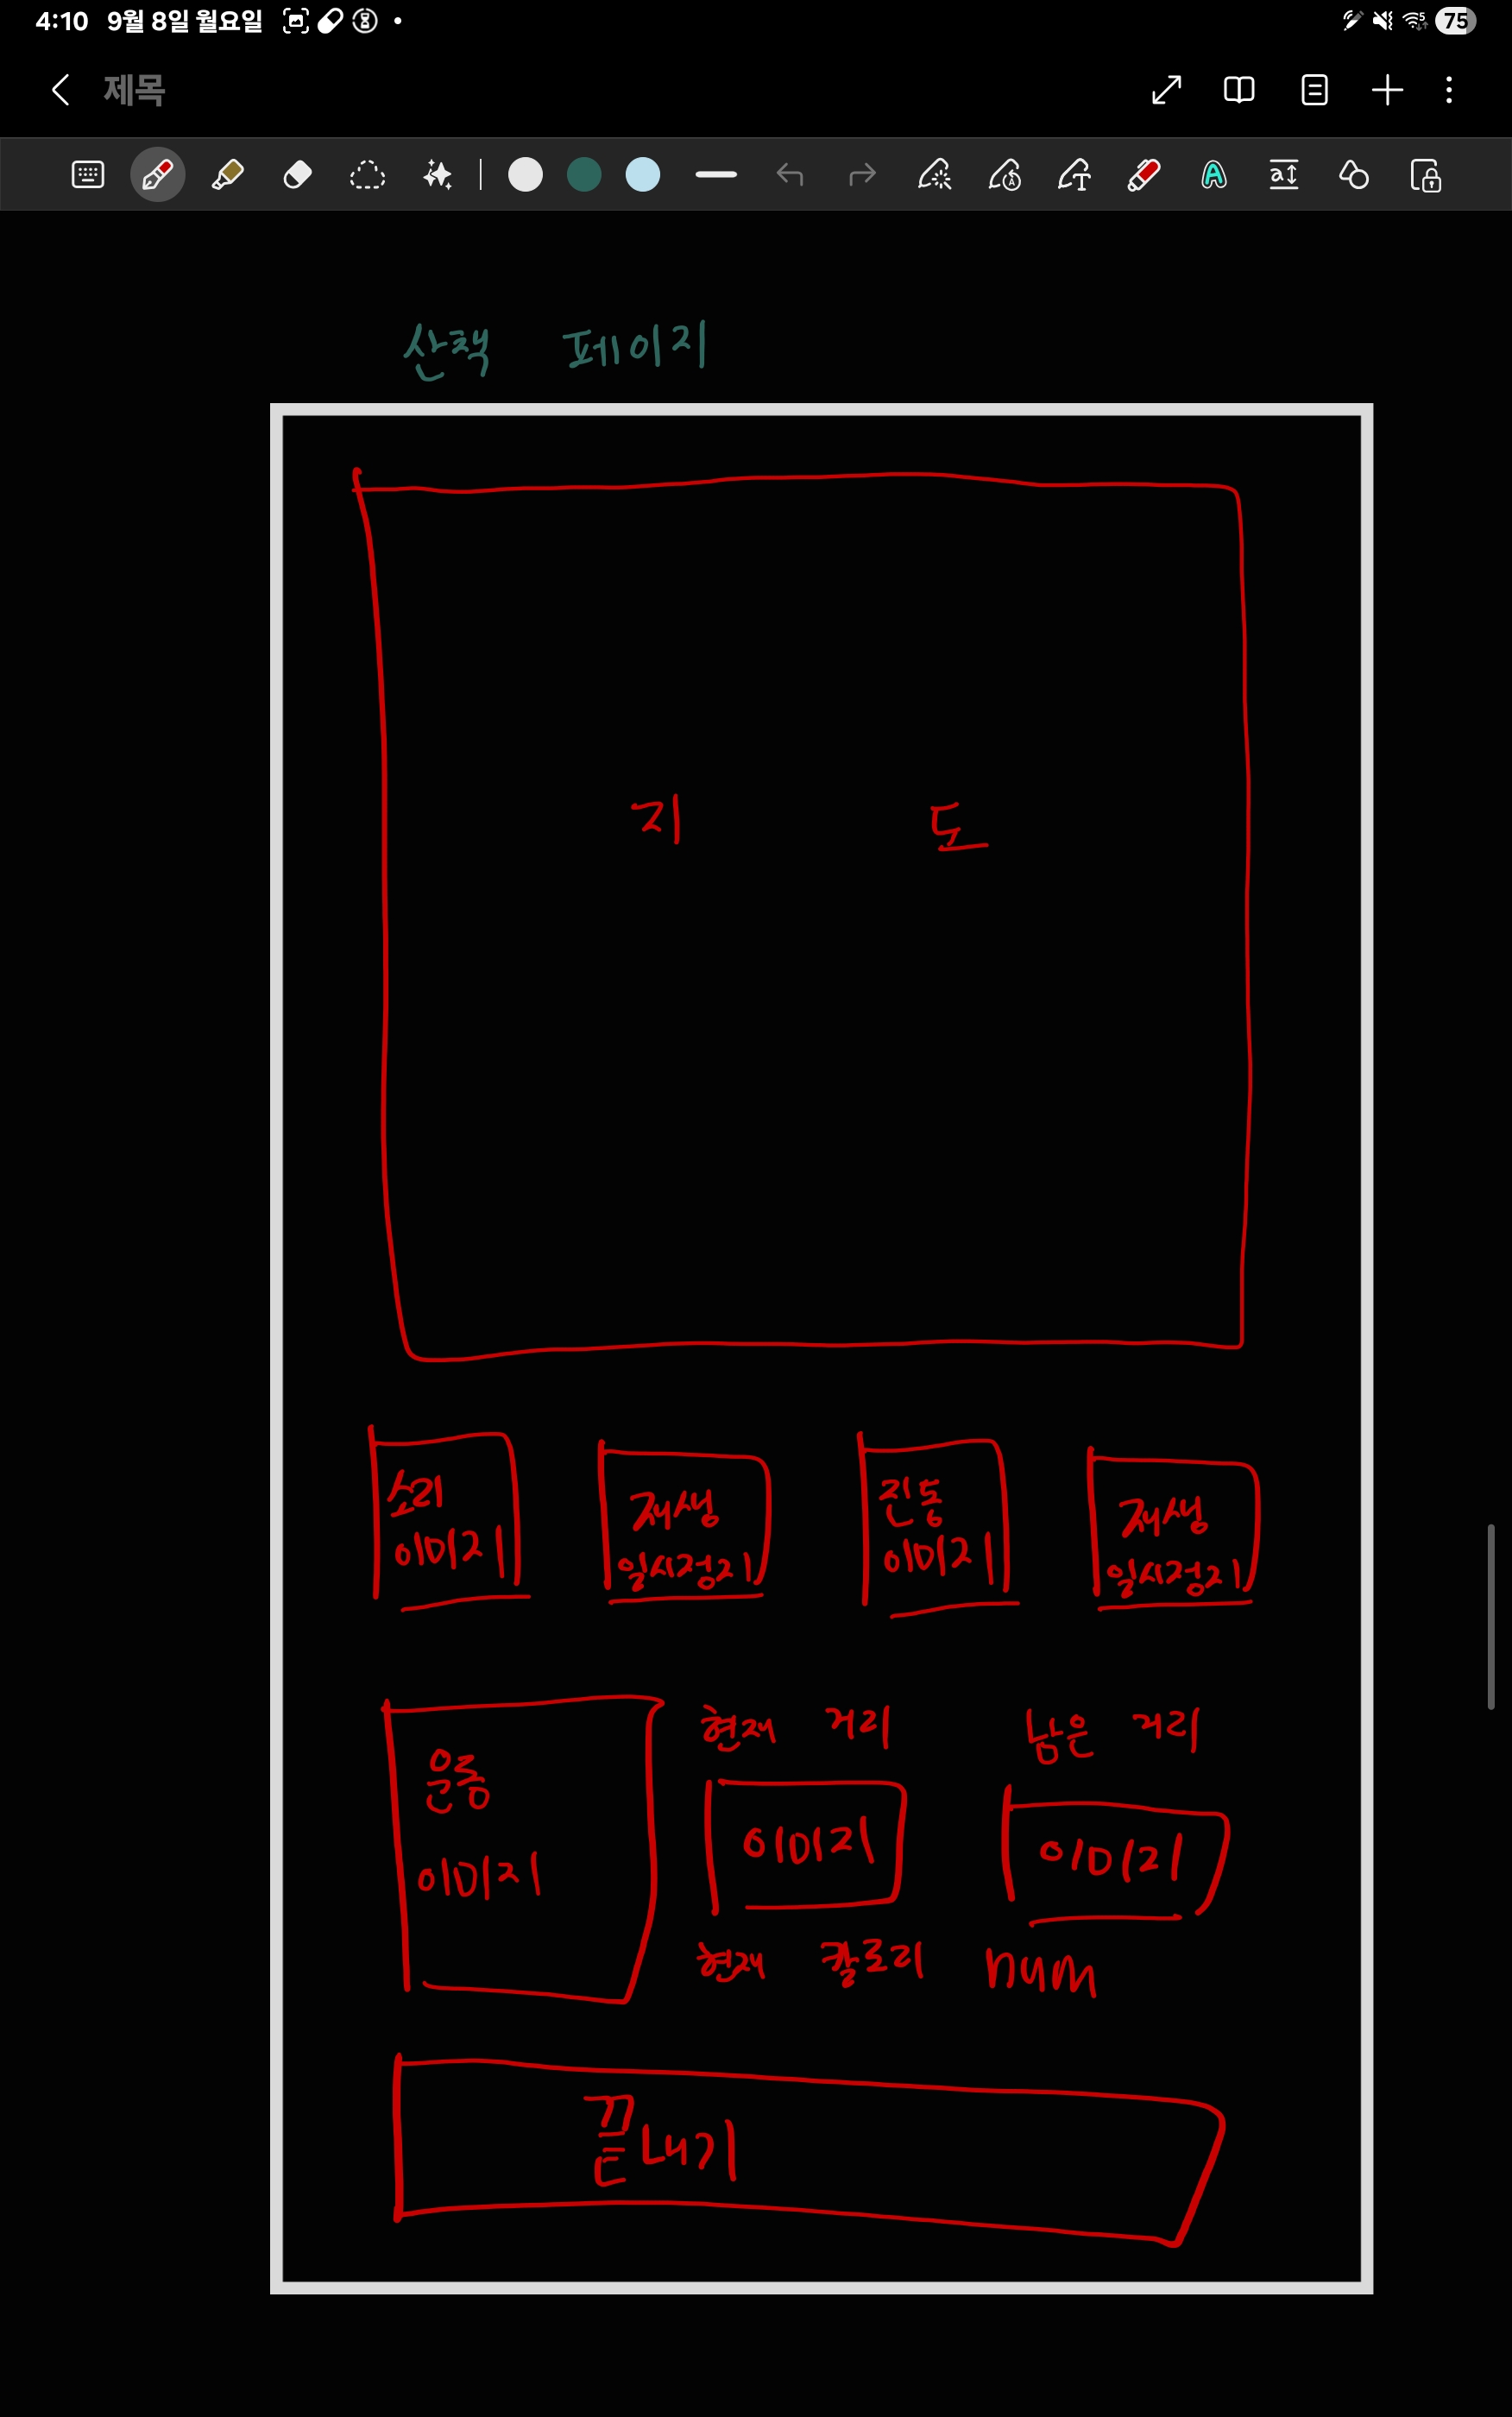 4:10 9월 8일 월요일
75
제목
산책 페이지
지 도
소리 이미지
재생 일시정지
진동 이미지
재생 일시정지
운동 이미지
현재 거리
남은 거리
이미지
이미지
현재 칼로리 num
끝내기